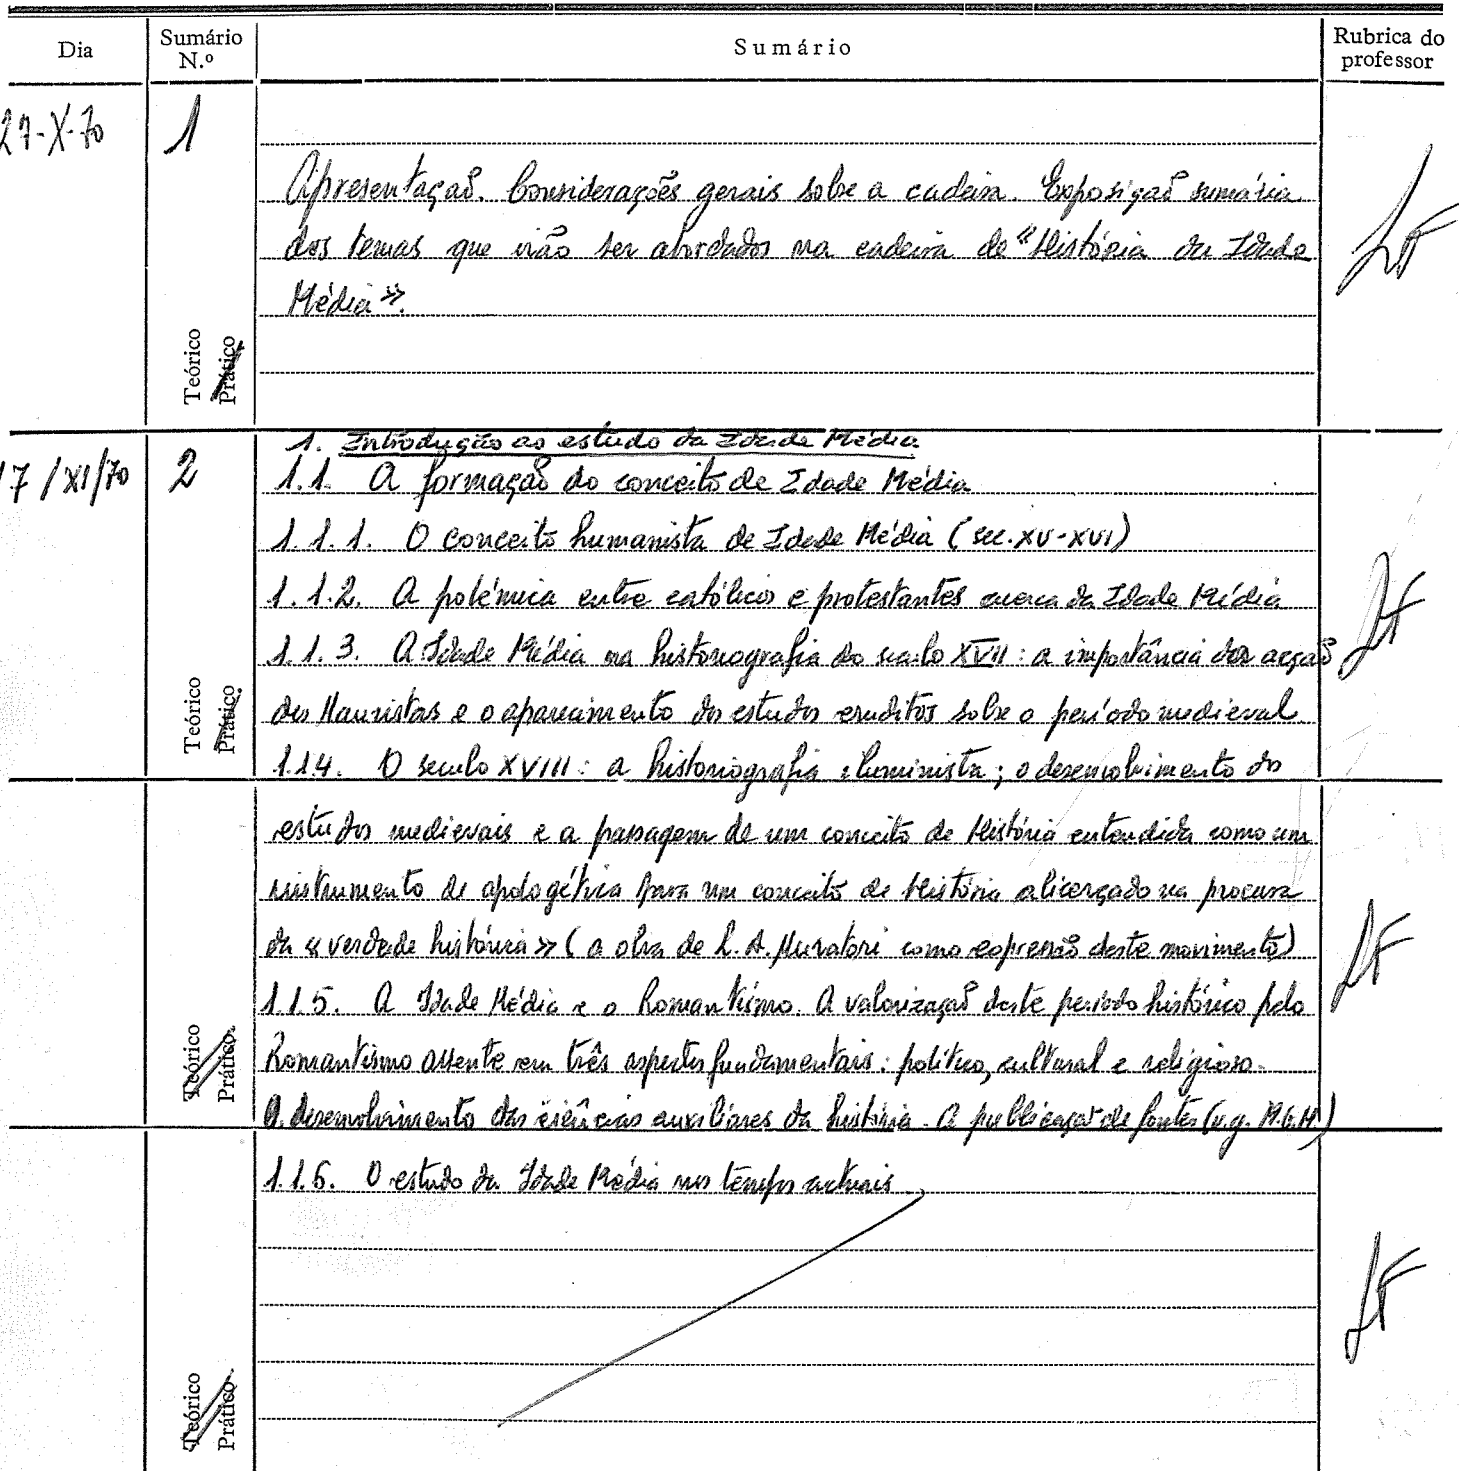 Dia Sumário N.º Sumário Rubrica do professor
27-X-70 1
Apresentação. Considerações gerais sobre a cadeira. Exposição sumária
dos temas que irão ser abordados na cadeira de «História da Idade
Média».
Teórico
Prático
1. Introdução ao estudo da Idade Média
17/XI/70 2 1.1. A formação do conceito de Idade Média
1.1.1. O conceito humanista de Idade Média (sec. XV-XVI)
1.1.2. A polémica entre católicos e protestantes acerca da Idade Média
1.1.3. A Idade Média na historiografia do seculo XVII: a importância da acção
dos Mauristas e o aparecimento dos estudos eruditos sobre o período medieval
Teórico
Prático.
1.1.4. O seculo XVIII: a historiografia iluminista; o desenvolvimento dos
estudos medievais e a passagem de um conceito de História entendida como um
instrumento de apologética para um conceito de História alicerçado na procura
da «verdade histórica» (a obra de L. A. Muratori como expressão deste movimento)
1.1.5. A Idade Média e o Romantismo. A valorização deste período histórico pelo
Romantismo assente em três aspectos fundamentais: político, cultural e religioso.
Teórico
Prático.
O desenvolvimento das ciências auxiliares da história. A publicação de fontes (v.g. M.G.H.)
1.1.6. O estudo da Idade Média nos tempos actuais
Teórico
Prático.